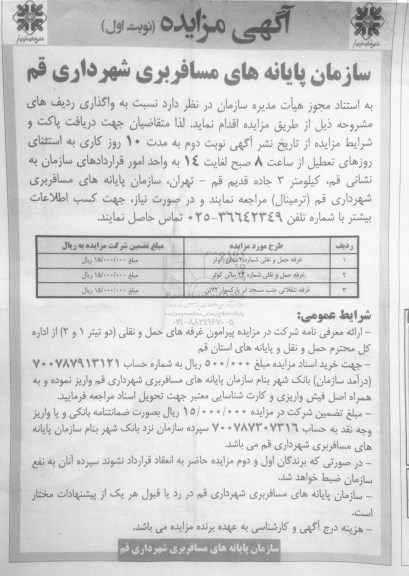 آگهی مزایده (نوبت اول)
سازمان پایانه های مسافربری شهرداری قم
به استناد مجوز هیأت مدیره سازمان در نظر دارد نسبت به واگذاری ردیف های
مشروحه ذیل از طریق مزایده اقدام نماید. لذا متقاضیان جهت دریافت پاکت و
شرایط مزایده از تاریخ نشر آگهی نوبت دوم به مدت ۱۰ روز کاری به استثنای
روزهای تعطیل از ساعت ۸ صبح لغایت ۱۴ به واحد امور قراردادهای سازمان به
نشانی قم، کیلومتر ۳ جاده قدیم قم - تهران، سازمان پایانه های مسافربری
شهرداری قم (ترمینال) مراجعه نمایند و در صورت نیاز، جهت کسب اطلاعات
بیشتر با شماره تلفن ۳۶۶۴۲۳۴۹-۰۲۵ تماس حاصل نمایند.
ردیف طرح مورد مزایده مبلغ تضمین شرکت مزایده به ریال
۱ غرفه حمل و نقلی شماره سالن کوثر مبلغ ۱۵/۰۰۰/۰۰۰ ریال
۲ غرفه حمل و نقلی شماره ۲۴ سالن کوثر مبلغ ۱۵/۰۰۰/۰۰۰ ریال
۳ غرفه تنقلاتی جنب مسجد در پارکسوار مبلغ ۱۵/۰۰۰/۰۰۰ ریال
۰۲۱-۸۸۳۴۹۶۷۰-۵
شرایط عمومی:
- ارائه معرفی نامه شرکت در مزایده پیرامون غرفه های حمل و نقلی (دو تیتر ۱ و ۲) از اداره
کل محترم حمل و نقل و پایانه های استان قم
- جهت خرید اسناد مزایده مبلغ ۵۰۰/۰۰۰ ریال به شماره حساب ۷۰۰۷۸۷۹۱۳۱۲۱
(درآمد سازمان) بانک شهر بنام سازمان پایانه های مسافربری شهرداری قم واریز نموده و به
همراه اصل فیش واریزی و کارت شناسایی معتبر جهت تحویل اسناد مراجعه فرمایید.
- مبلغ تضمین شرکت در مزایده ۱۵/۰۰۰/۰۰۰ ریال بصورت ضمانتنامه بانکی و یا واریز
وجه نقد به حساب ۷۰۰۷۸۷۳۰۷۳۱۶ سپرده سازمان نزد بانک شهر بنام سازمان پایانه
های مسافربری شهرداری قم می باشد.
- در صورتی که برندگان اول و دوم مزایده حاضر به انعقاد قرارداد نشوند سپرده آنان به نفع
سازمان ضبط خواهد شد.
- سازمان پایانه های مسافربری شهرداری قم در رد یا قبول هر یک از پیشنهادات مختار
است.
- هزینه درج آگهی و کارشناسی به عهده برنده مزایده می باشد.
سازمان پایانه های مسافربری شهرداری قم